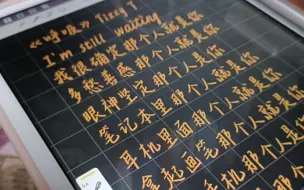 《呼唤》Tizzy T
I'm still waiting
我很确定那个人就是你
多愁善感那个人就是你
眼神坚定那个人就是你
笔记本里那个人就是你
耳机里面那个人就是你
拿起画笔那个人就是你
机那个人就是